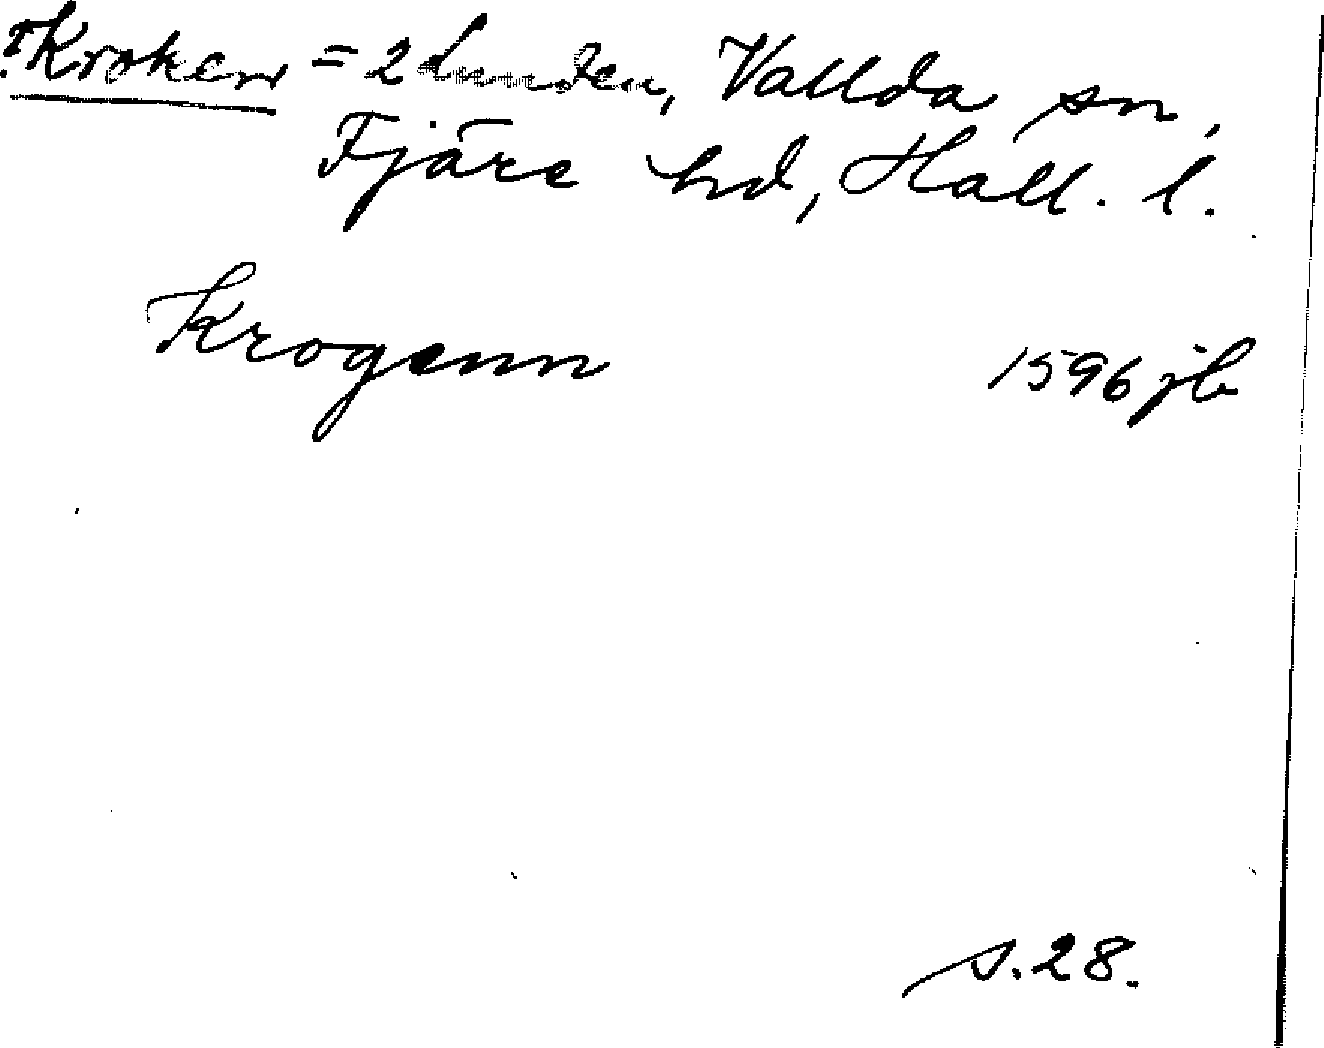 ?Kroken = 2 Lunden, Vallda sn,
Fjäre hd, Hall. l.
Krogenn 1596 jb
s. 28.